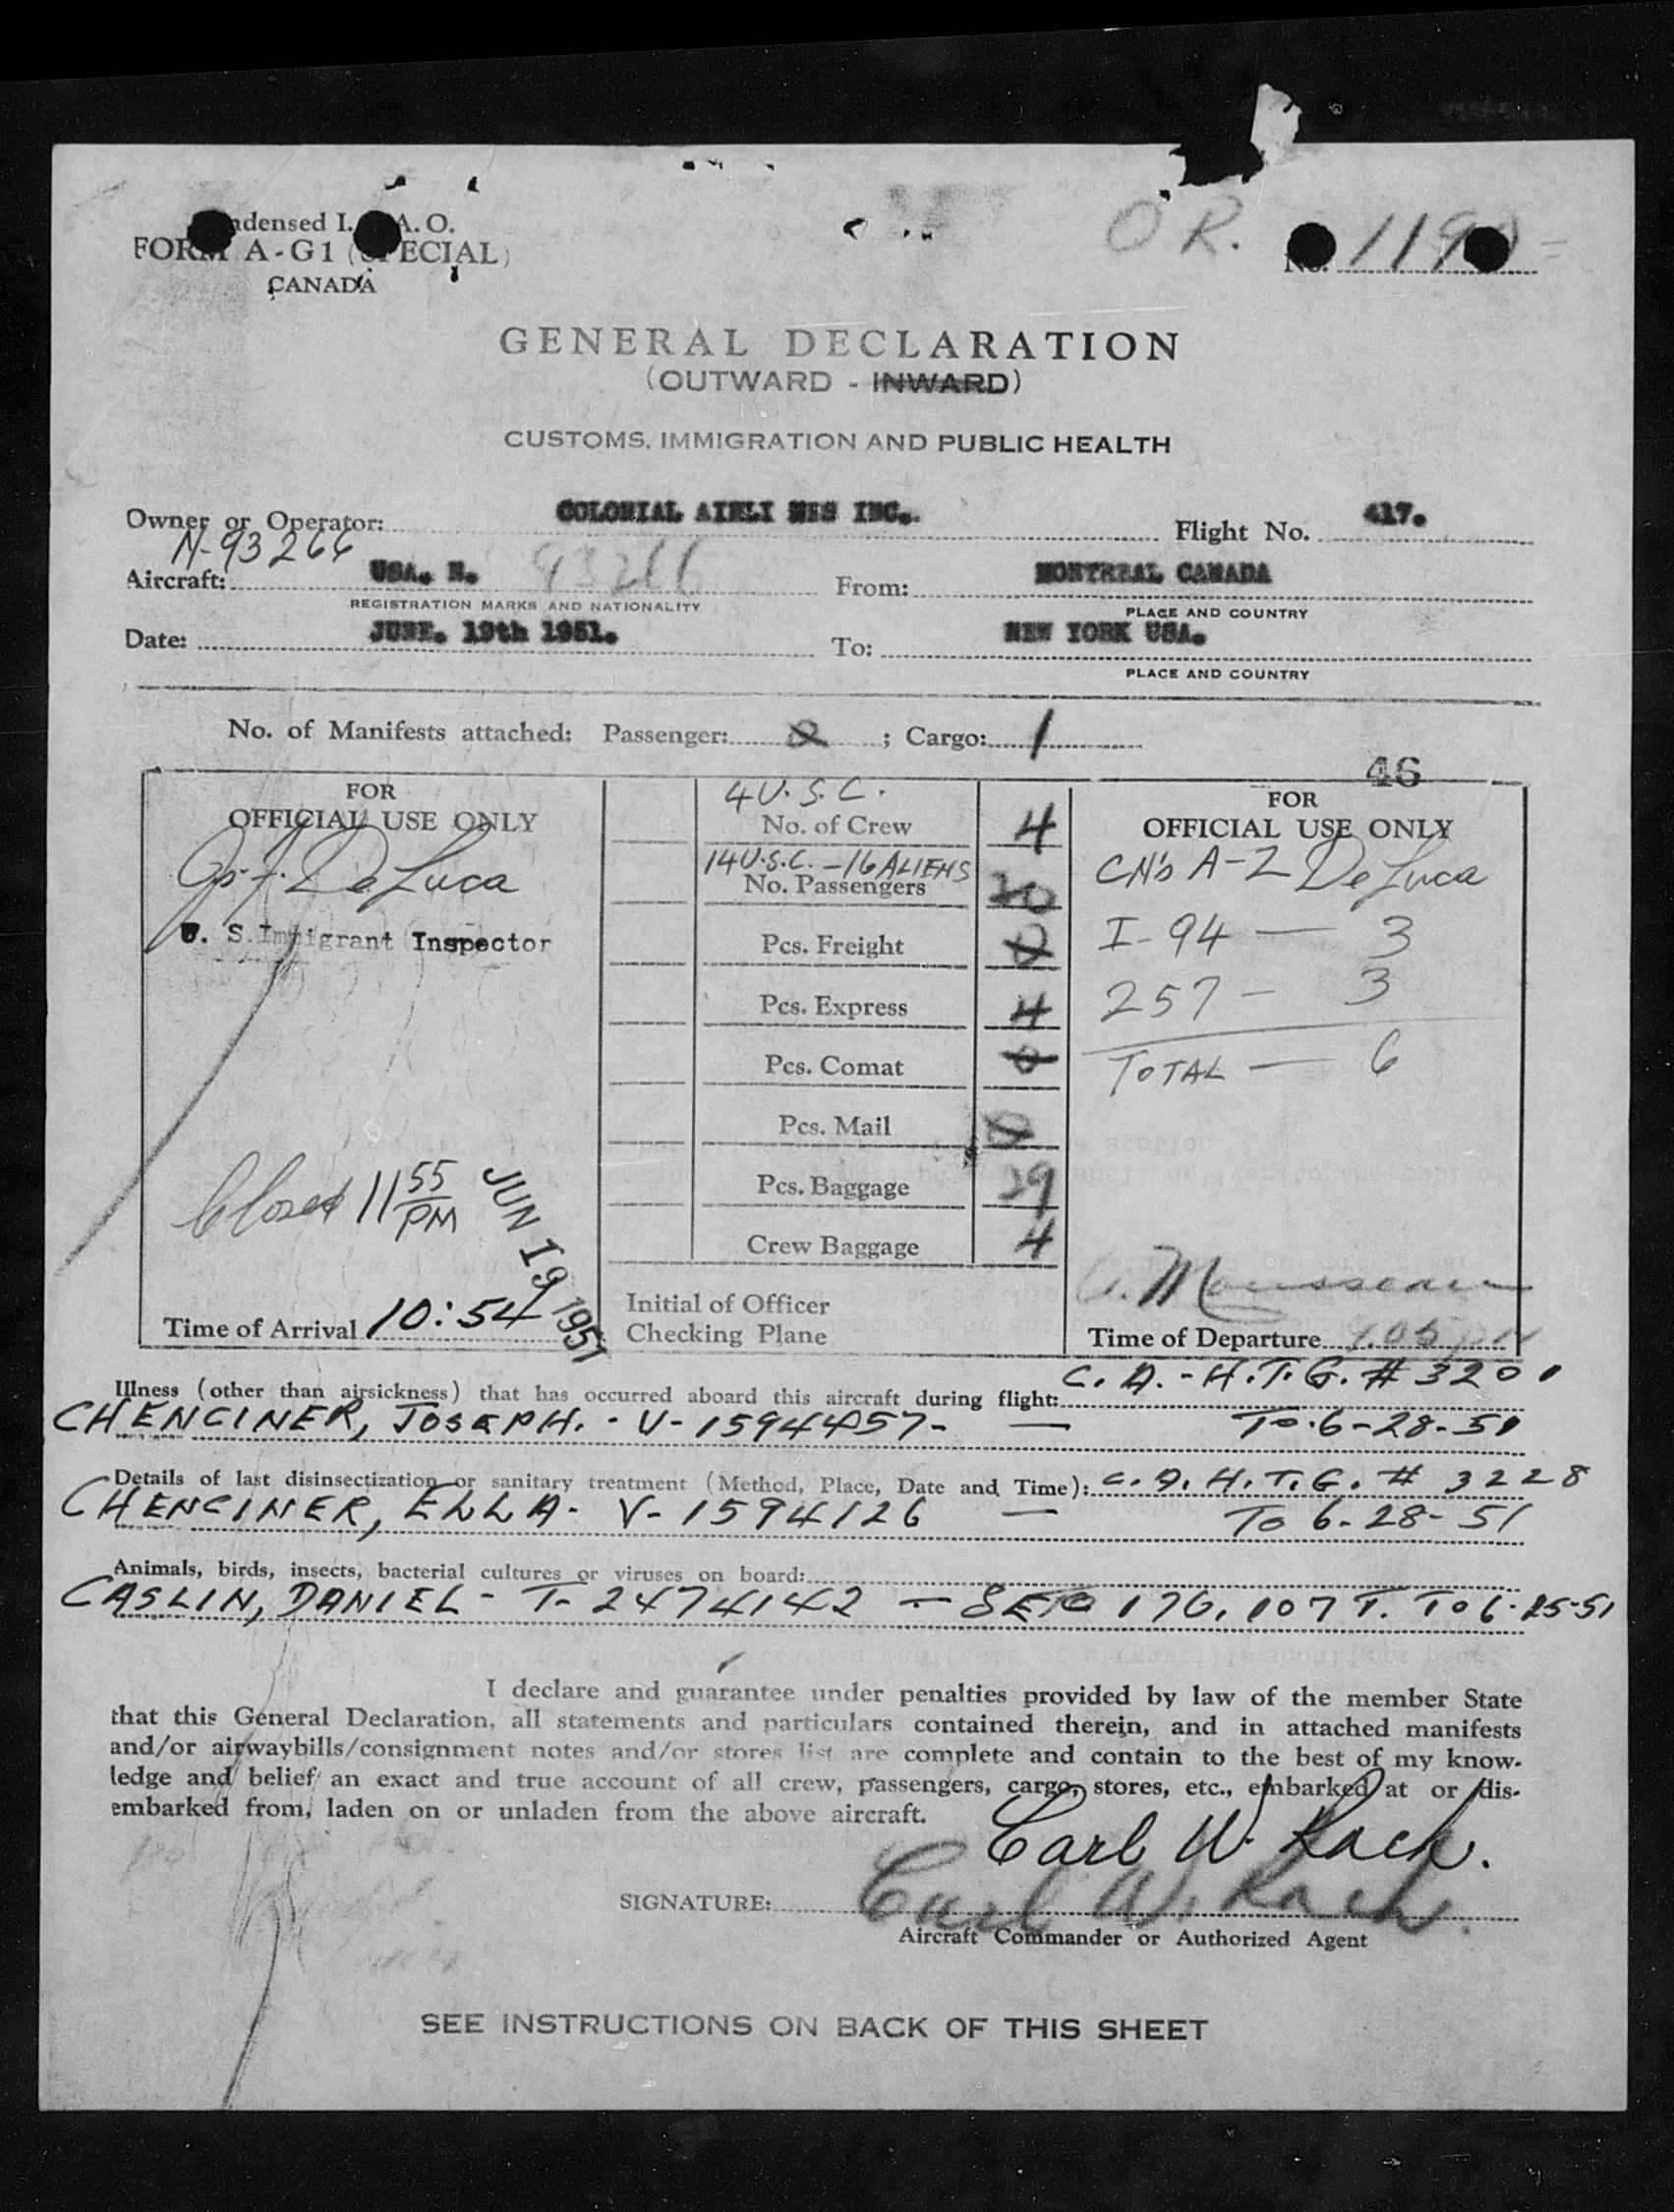 Condensed I.C.A.O.
FORM A-G1 (SPECIAL)
CANADA
O R.
No. 1190
GENERAL DECLARATION
(OUTWARD - INWARD)
CUSTOMS, IMMIGRATION AND PUBLIC HEALTH
Owner or Operator: COLONIAL AIRLI NES INC. Flight No. 417.
N-93266
Aircraft: USA. N. 93266 From: MONTREAL CANADA
REGISTRATION MARKS AND NATIONALITY PLACE AND COUNTRY
Date: JUNE. 19th 1951. To: NEW YORK USA.
PLACE AND COUNTRY
No. of Manifests attached: Passenger: 0 ; Cargo: 1
46
FOR
OFFICIAL USE ONLY
De Luca
U. S. Immigrant Inspector
Closed 11 55 PM
JUN 19 1951
Time of Arrival 10:54
4 U.S.C.
No. of Crew 4
14 U.S.C. - 16 ALIENS
No. Passengers 30
Pcs. Freight 0
Pcs. Express 4
Pcs. Comat 0
Pcs. Mail 0
Pcs. Baggage 29
Crew Baggage 4
Initial of Officer
Checking Plane
FOR
OFFICIAL USE ONLY
CN's A-2 De Luca
I-94 — 3
257 - 3
TOTAL — 6
Time of Departure 9.05 PM
Illness (other than airsickness) that has occurred aboard this aircraft during flight: C.A.-H.T.G. # 3201
CHENCINER, JOSEPH. - V-1594457- — To 6-28-51
Details of last disinsectization or sanitary treatment (Method, Place, Date and Time): C.A.H.T.G. # 3228
CHENCINER, ELLA- V-1594126 — To 6-28-51
Animals, birds, insects, bacterial cultures or viruses on board:
CASLIN, DANIEL - T-2474142 - SEC 176.107 T. To 6-25-51
I declare and guarantee under penalties provided by law of the member State
that this General Declaration, all statements and particulars contained therein, and in attached manifests
and/or airwaybills/consignment notes and/or stores list are complete and contain to the best of my know-
ledge and belief an exact and true account of all crew, passengers, cargo, stores, etc., embarked at or dis-
embarked from, laden on or unladen from the above aircraft.
Carl W. Rach.
SIGNATURE: Carl W. Rach.
Aircraft Commander or Authorized Agent
SEE INSTRUCTIONS ON BACK OF THIS SHEET